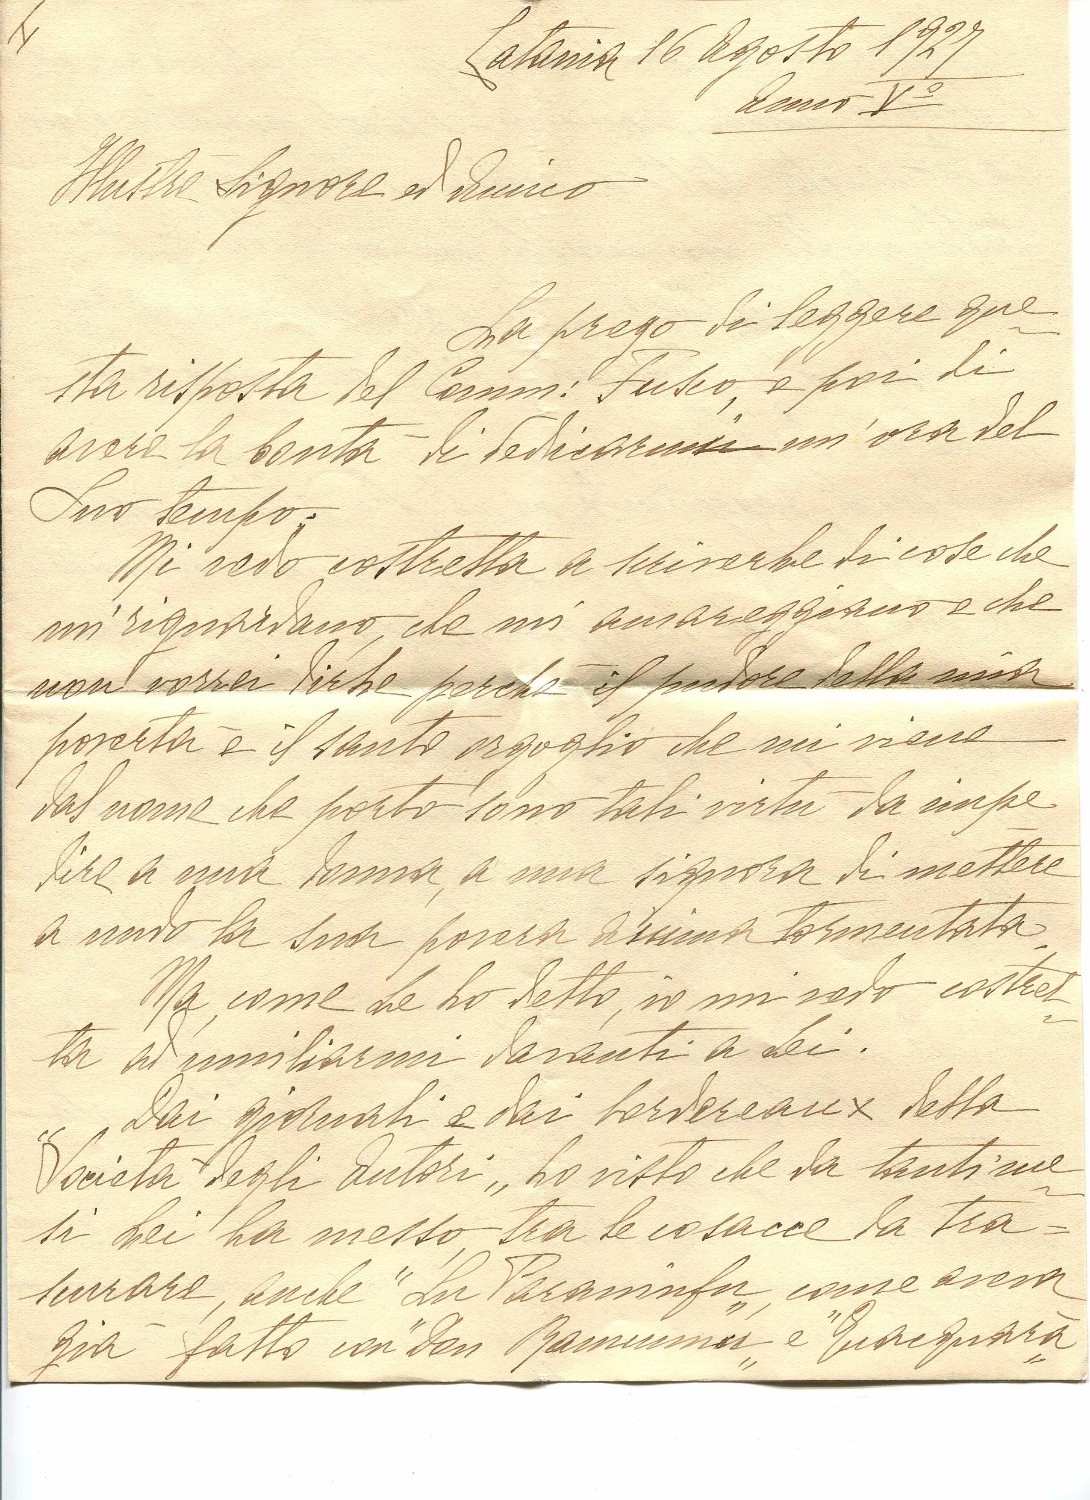 Catania 16 Agosto 1927
Anno Vº
Illustre Signore ed Amico
La prego di leggere que
sta risposta del Comm: Fusco, e poi di
avere la bontà di dedicarmi un'ora del
Suo tempo.
Mi vedo costretta a scriverLe di cose che
mi riguardano, che mi amareggiano e che
non vorrei dirLe perchè il pudore della mia
povertà e il santo orgoglio che mi viene
dal nome che porto sono tali virtù da impe
dire a una donna, a una signora di mettere
a nudo la sua povera anima tormentata.
Ma, come Le ho detto, io mi vedo costret-
ta ad umiliarmi davanti a Lei.
Dai giornali e dai bordereaux della
"Società degli Autori„ ho visto che da tanti me
si Lei ha messo, tra le cosacce da tra=
scurare, anche "Lu Paraninfu„, come aveva
già fatto con "Don Ramunnu„ e "Quacquarà„